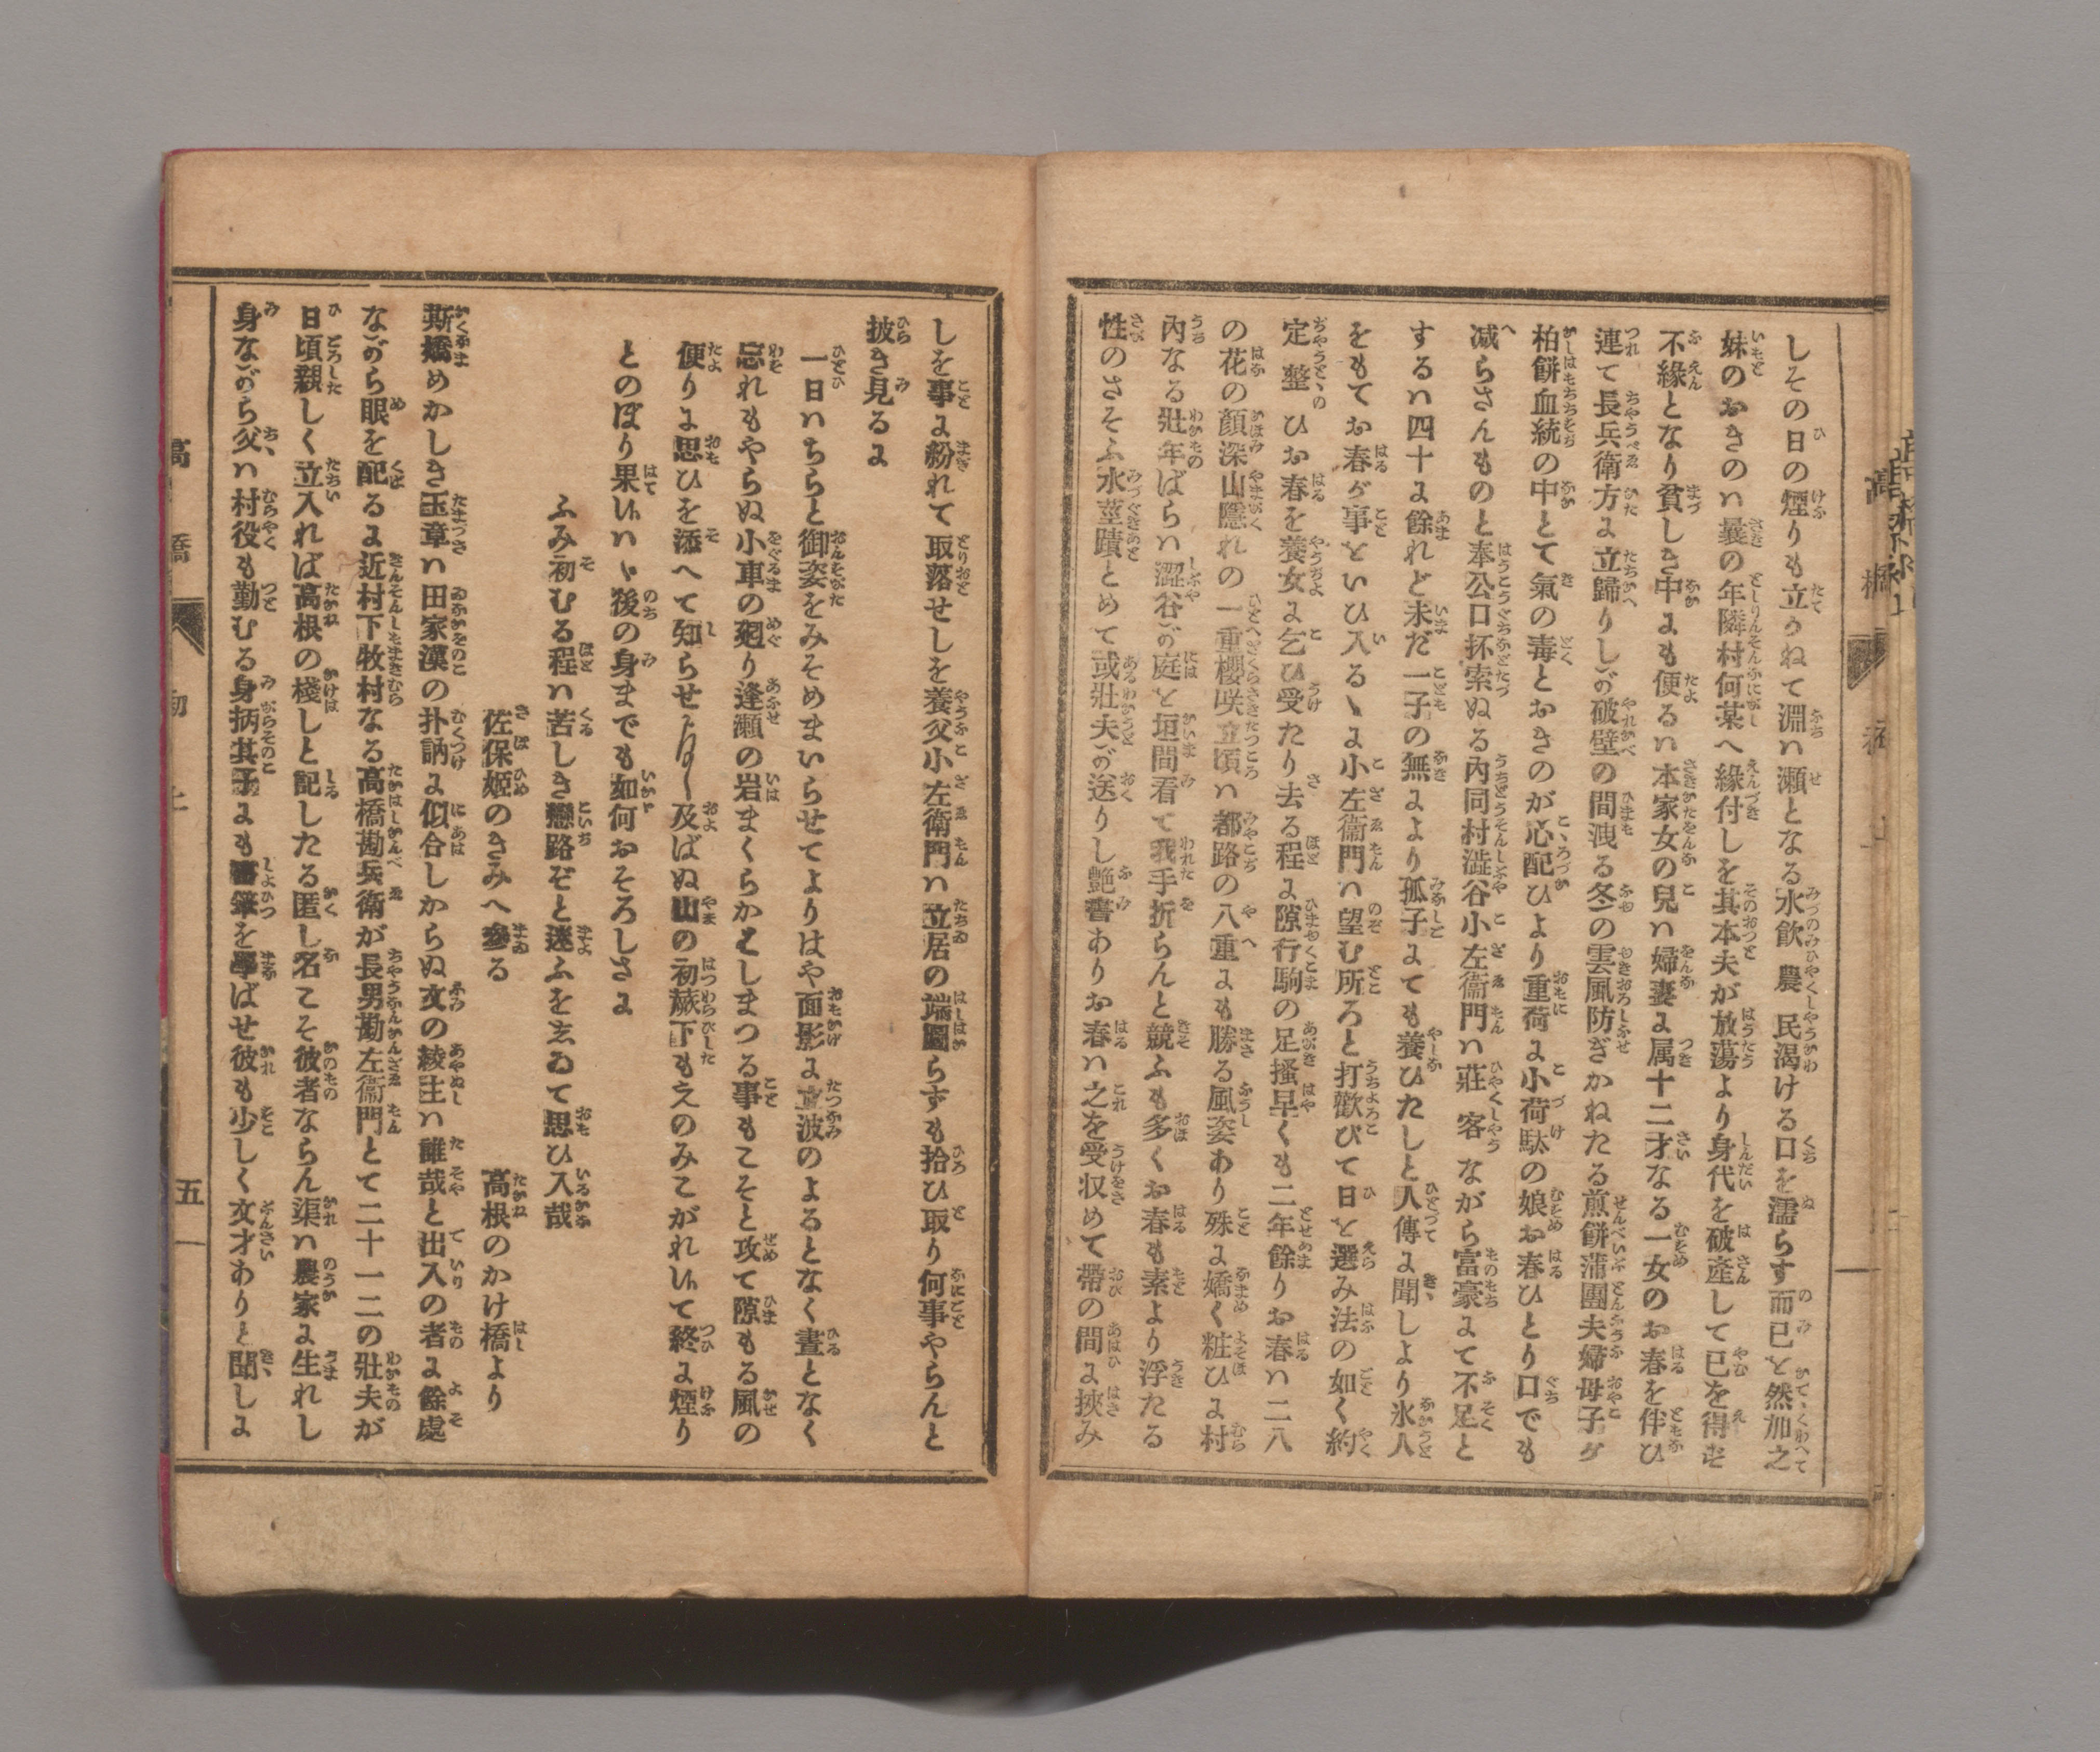 しその日の煙りも立かねて淵ハ瀬となる水飲農民渇ける口を濡らす而已と然加之
妹のおきのハ曩の年隣村何某へ緣付しを其本夫が放蕩より身代を破產して已を得ず
不緣となり貧しき中にも便るハ本家女の兒ハ婦妻に属十二才なる一女のお春を伴ひ
連て長兵衛方に立歸りしが破壁の間洩る冬の雲風防ぎかねたる煎餅蒲團夫婦母子が
柏餅血統の中とて氣の毒とおきのが心配ひより重荷に小荷駄の娘お春ひとり口でも
減らさんものと奉公口抔索ぬる內同村澁谷小左衞門ハ莊客ながら富豪にて不足と
するハ四十に餘れど未だ一子の無により孤子にても養ひたしと人傳に聞しより氷人
をもてお春が事をいひ入るゝに小左衞門ハ望む所ろと打歡びて日を選み法の如く約
定整ひお春を養女に乞ひ受たり去る程に隙行駒の足搔早くも二年餘りお春ハ二八
の花の顏深山隱れの一重櫻咲立頃ハ都路の八重にも勝る風姿あり殊に嬌く粧ひに村
內なる壯年ばらハ澀谷が庭を垣間看て我手折らんと競ふも多くお春も素より浮たる
性のさそふ水莖蹟とめて或壯夫が送りし艶書ありお春ハ之を受収めて帶の間に挾み
しを事に紛れて取落せしを養父小左衛門ハ立居の端圖らずも拾ひ取り何事やらんと
披き見るに
一日ハちらと御姿をみそめまいらせてよりはや面影に立波のよるとなく晝となく
忘れもやらぬ小車の廻り逢瀬の岩まくらかとしまつる事もこそと攻て隙もる風の
便りに思ひを添へて知らせ及ばぬ山の初蕨下もえのみこがれいて終に煙り
とのぼり果いハゝ後の身までも如何おそろしさに
ふみ初むる程ハ苦しき戀路ぞと迷ふをゑゐて思ひ入哉
高根のかけ橋より
佐保姬のきみへ參る
斯嬌めかしき玉章ハ田家漢の扑訥に似合しからぬ文の綾主ハ誰哉と出入の者に餘處
ながら眼を配るに近村下牧村なる高橋勘兵衛が長男勘左衞門とて二十一二の壯夫が
日頃親しく立入れば高根の棧しと記したる匿し名こそ彼者ならん渠ハ農家に生れし
身ながら父ハ村役も勤むる身柄其子にも書筆を學ばせ彼も少しく文才ありと聞しに
高橋
初上
五